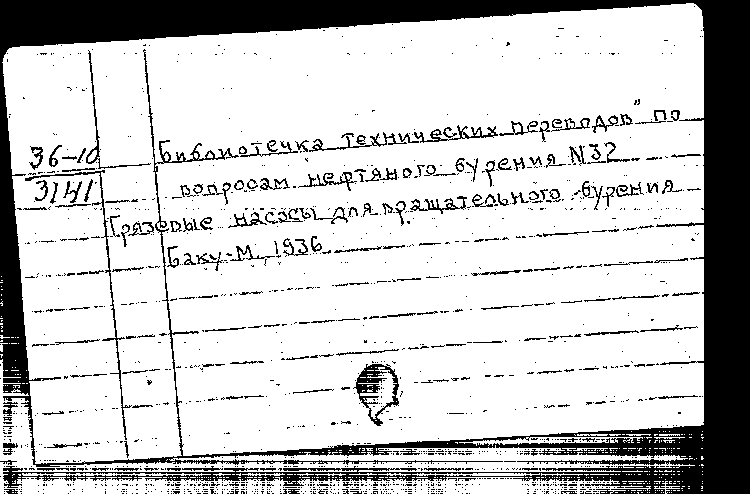 36-10
3141
Библиотечка технических переводов" по
вопросам нефтяного бурения N32
Грязевые насосы для вращательного бурения
Баку-М. 1936